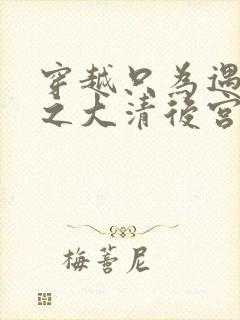 穿越只為遇
之大清後宮
梅蕾尼